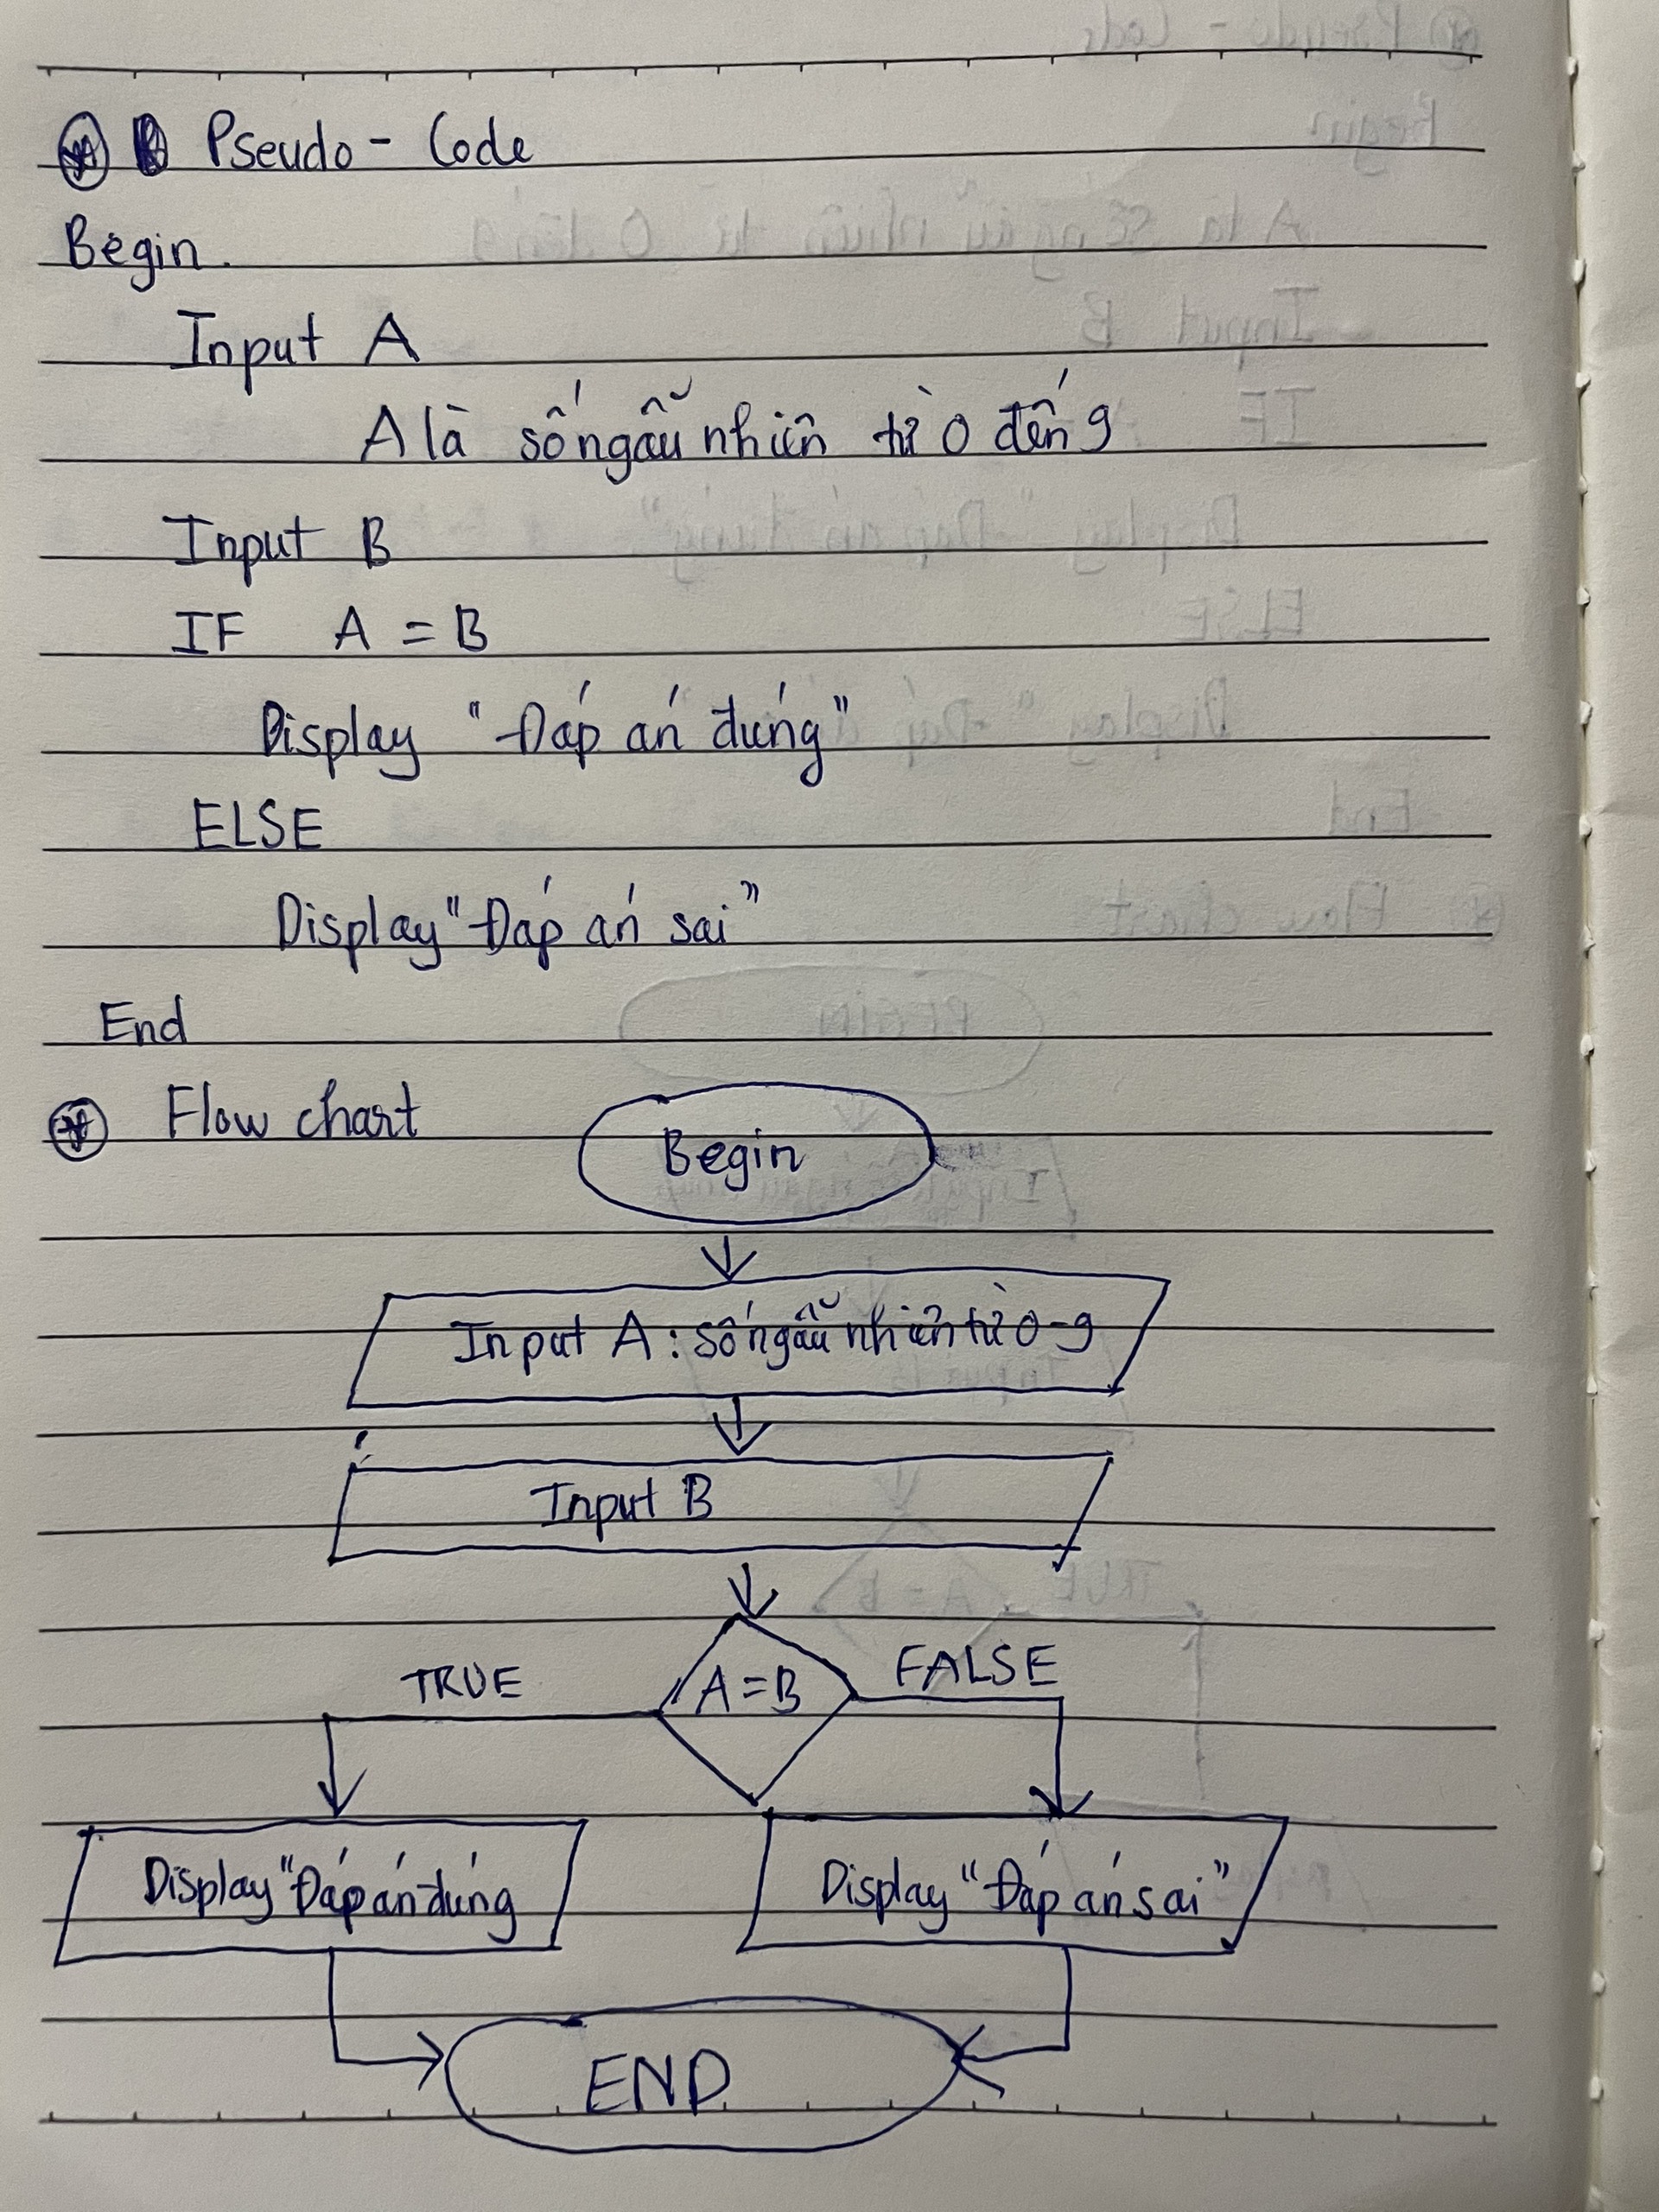 Pseudo - Code
Begin.
Input A
A là số ngẫu nhiên từ 0 đến 9
Input B
IF A = B
Display "Đáp án đúng"
ELSE
Display "Đáp án sai"
End
Flow chart
Begin
Input A : số ngẫu nhiên từ 0-9
Input B
A = B
TRUE
FALSE
Display "Đáp án đúng
Display "Đáp án sai"
END